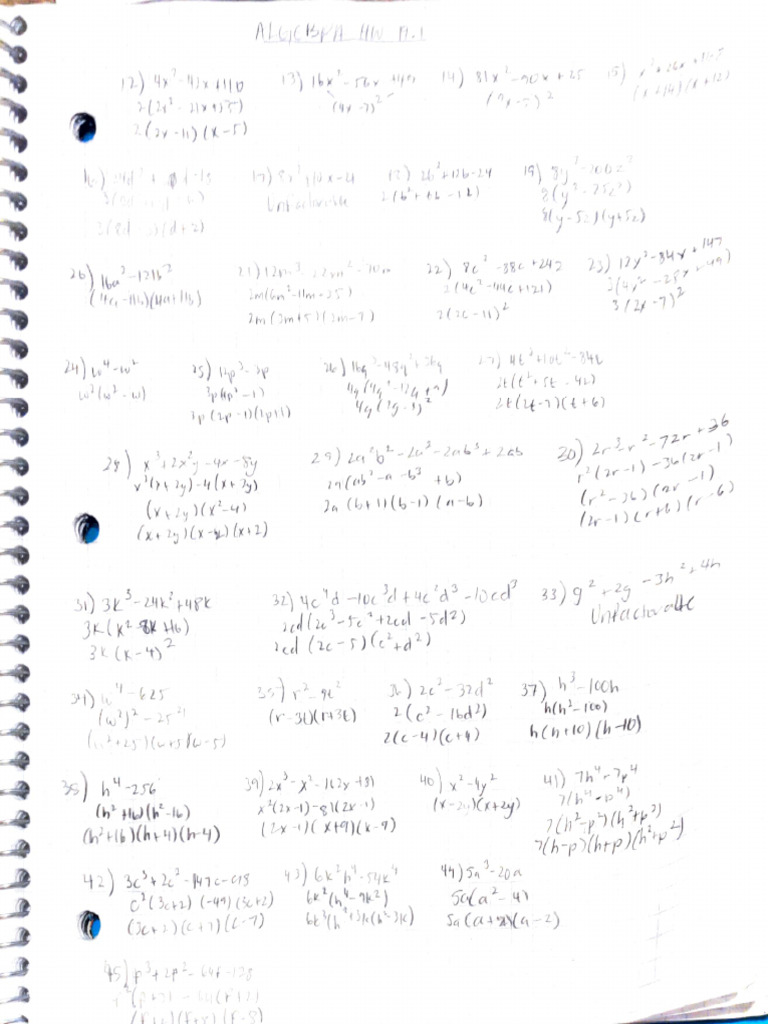 ALGEBRA HW
12) 4x² - 42x + 110
2(2x² - 21x + 55)
2(2x - 11)(x - 5)
13) 16x² - 56x + 49
(4x - 7)²
14) 81x² - 90x + 25
(9x - 5)²
15) x² + 26x +
(x + 14)(x + 12)
16)
(d + 2)
17) 8x² + 10x - 4
Unfactorable
18) 2b² + 12b - 24
19) 8y² - 200z²
8(y² - 25z²)
8(y - 5z)(y + 5z)
20) 16a² - 121b²
(4a - 11b)(4a + 11b)
21) 12m³ - 22m² - 70m
2m(6m² - 11m - 35)
2m(3m + 5)(2m - 7)
22) 8c² - 88c + 242
2(4c² - 44c + 121)
2(2c - 11)²
23) 12x² - 84x + 147
3(4x² - 28x + 49)
3(2x - 7)²
24) w⁴ - w²
w²(w² - w)
25) 12p³ - 3p
3p(4p² - 1)
3p(2p - 1)(2p + 1)
26) 16q³ - 48q² + 36q
4q(4q² - 12q + 9)
27) 4t³ + 10t² - 84t
2t(2t - 7)(t + 6)
28) x³ + 2x²y - 4x - 8y
(x + 2y)(x² - 4)
29) 2a²b² - 2a² - 2ab³ + 2ab
2a(ab² - a - b³ + b)
2a(b + 1)(b - 1)(a - b)
30) 2r³ - r² - 72r + 36
r²(2r - 1) - 36(2r - 1)
(r² - 36)(2r - 1)
(2r - 1)(r + 6)(r - 6)
31) 3k³ - 24k² + 48k
3k(k² - 8k + 16)
3k(k - 4)²
32) 4c⁴d - 10c³d + 4c²d³ - 10cd³
2cd(2c³ - 5c² + 2cd - 5d²)
2cd (2c - 5)(c² + d²)
33) g² + 2g - 3h² + 4h
Unfactorable
34) w⁴ - 625
(w²)² - 25²
(w² + 25)(w + 5)(w - 5)
35) r² - 9t²
(r - 3t)(r + 3t)
36) 2c² - 32d²
2(c² - 16d²)
2(c - 4)(c + 4)
37) h³ - 100h
h(h² - 100)
h(h + 10)(h - 10)
38) h⁴ - 256
(h² + 16)(h² - 16)
(h² + 16)(h + 4)(h - 4)
39) 2x³ - x² - 162x + 81
x²(2x - 1) - 81(2x - 1)
(2x - 1)(x + 9)(x - 9)
40) x² - 4y²
(x - 2y)(x + 2y)
41) 7h⁴ - 7p⁴
7(h⁴ - p⁴)
7(h² - p²)(h² + p²)
7(h - p)(h + p)(h² + p²)
42) 3c³ + 2c² - 147c - 98
c²(3c + 2)(-49)(3c + 2)
(3c + 2)(c + 7)(c - 7)
43) 6k²h⁴ - 54k⁴
6k²(h⁴ - 9k²)
44) 5a³ - 20a
5a(a² - 4)
5a(a + 2)(a - 2)
45) p³ + 2p² - 64p - 128